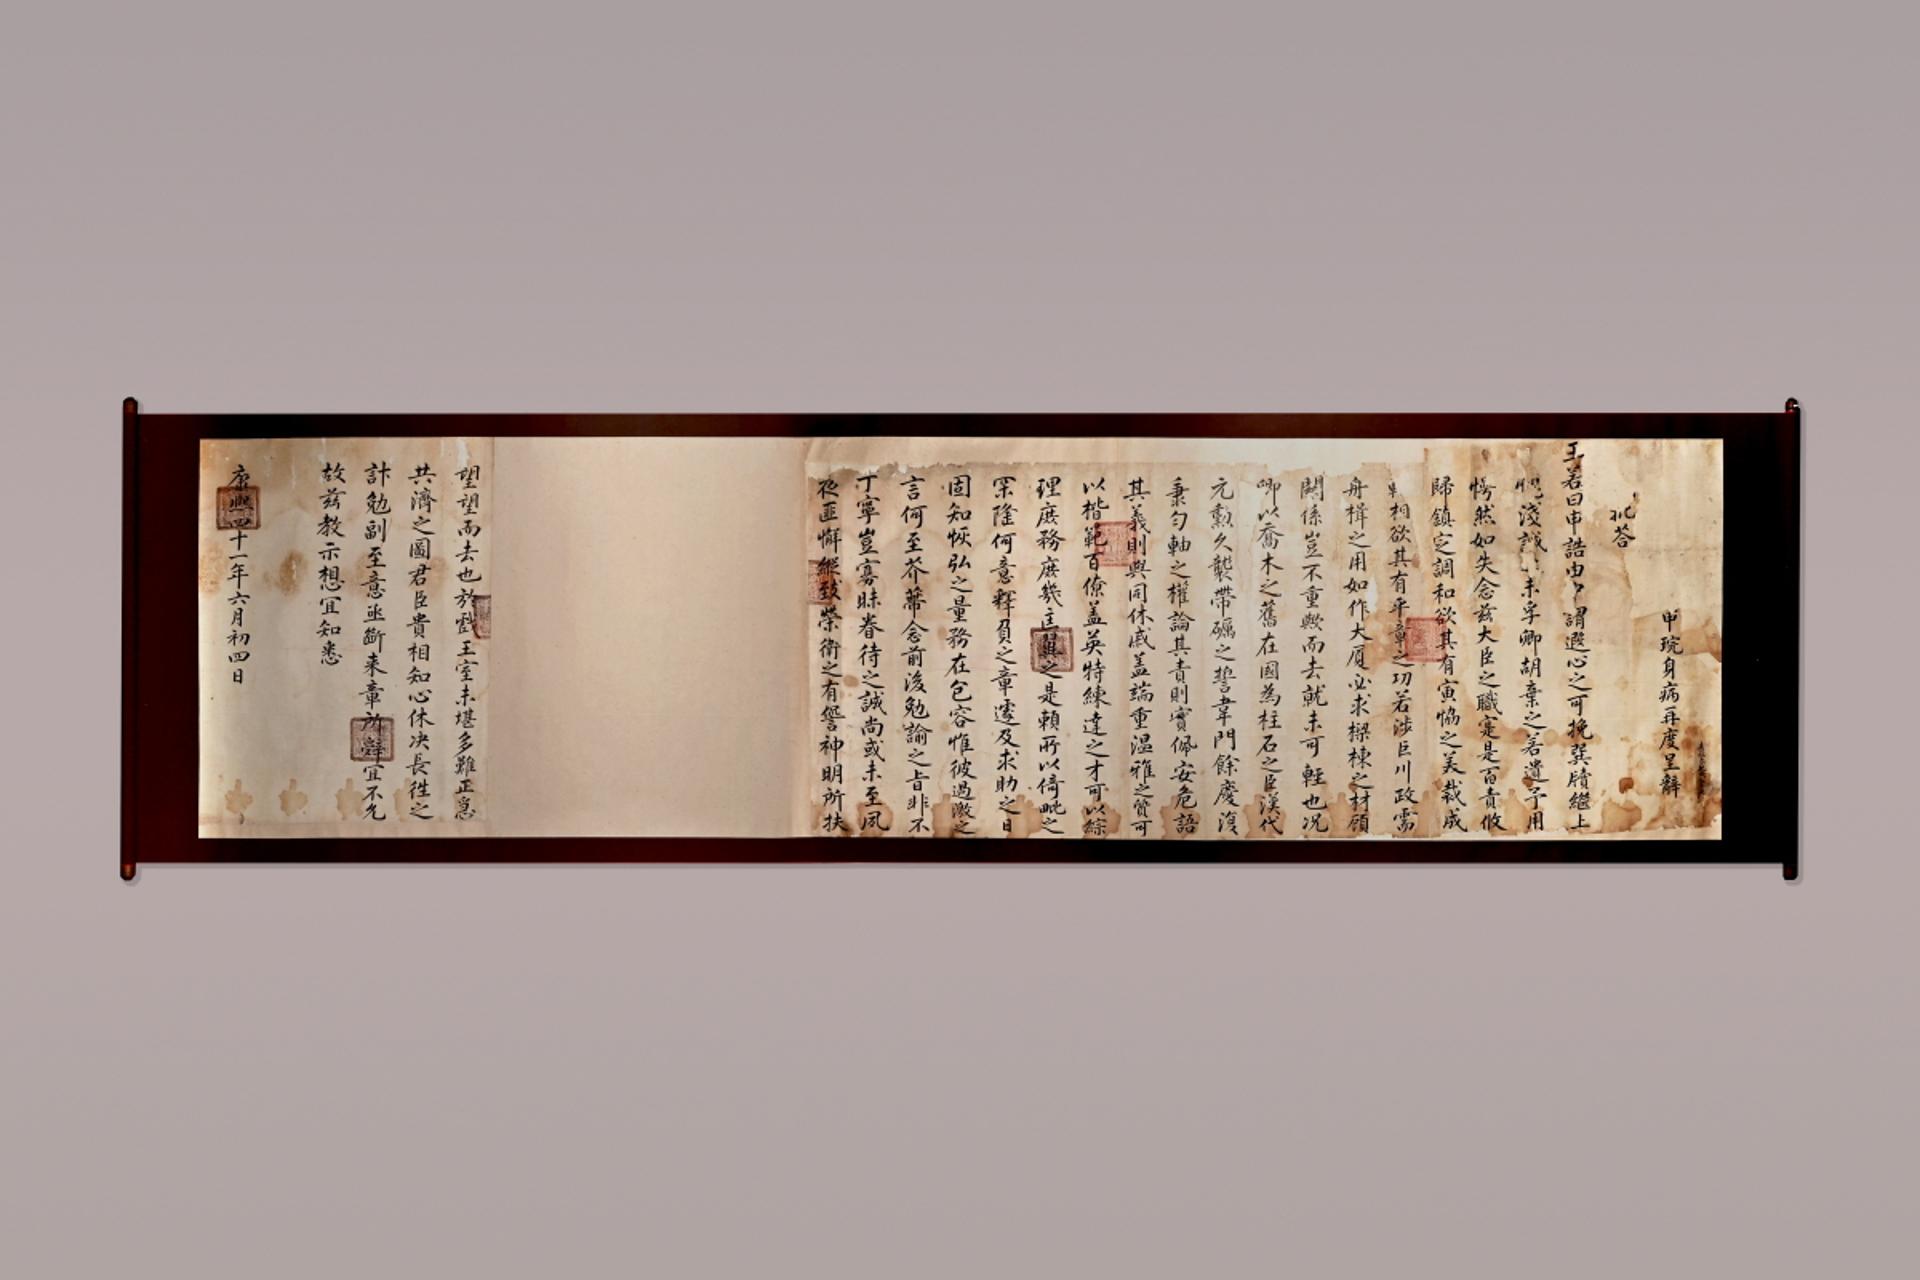 申琓身病再度呈辭
批答
王若曰申誥由中謂遐心之可挽巽牘繼上
淺誠未孚卿胡棄之若遺予用
愕然如失念茲大臣之職寔是百責攸
歸鎮定調和欲其有寅恊之美裁成
相欲其有平章之功若涉巨川政需
舟楫之用如作大厦必求樑棟之材顧
關係豈不重歟而去就未可輕也况
卿以喬木之舊在國為柱石之臣漢代
元勳久襲帶礪之誓韋門餘慶復
秉匀軸之權論其責則實佩安危語
其義則與同休戚盖端重溫雅之質可
以楷範百僚盖英特練達之才可以綜
理庶務庶幾匡翼之是賴所以倚毗之
罙隆何意釋負之章遽及求助之日
固知恢弘之量務在包容惟彼過激之
言何至芥蔕念前後勉諭之旨非不
丁寧豈寡昧眷待之誠尚或未至夙
夜匪懈縱致榮衛之有諐神明所扶
望望而去也於戲王室未堪多難正急
共濟之圖君臣貴相知心休決長徃之
計勉副至意亟斷来章所辭宜不允
故茲教示想宜知悉
康熙四十一年六月初四日